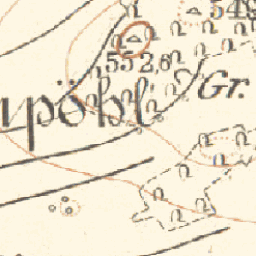 549
552,6
Gr.
upöhl